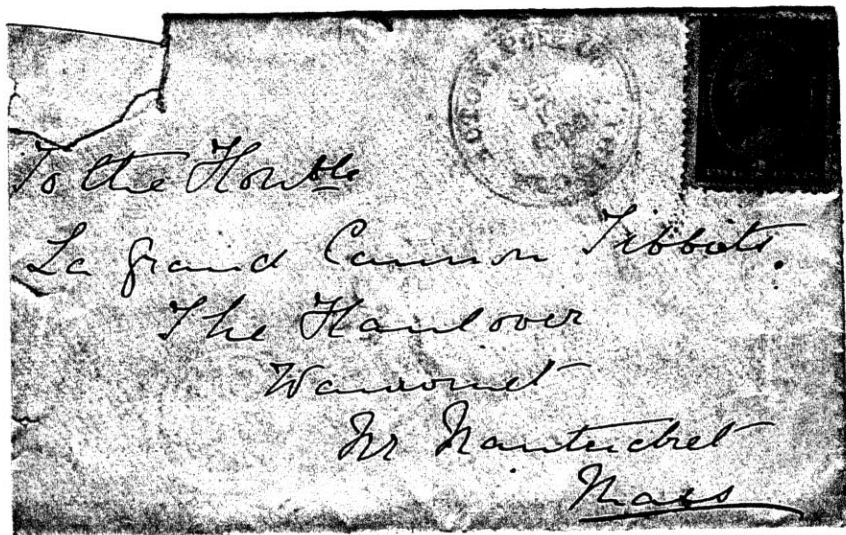 ACTON
To the Honble
La Grand Cannon Tibbits.
The Haulover
Wauwomet
Nr Nantucket
Mass